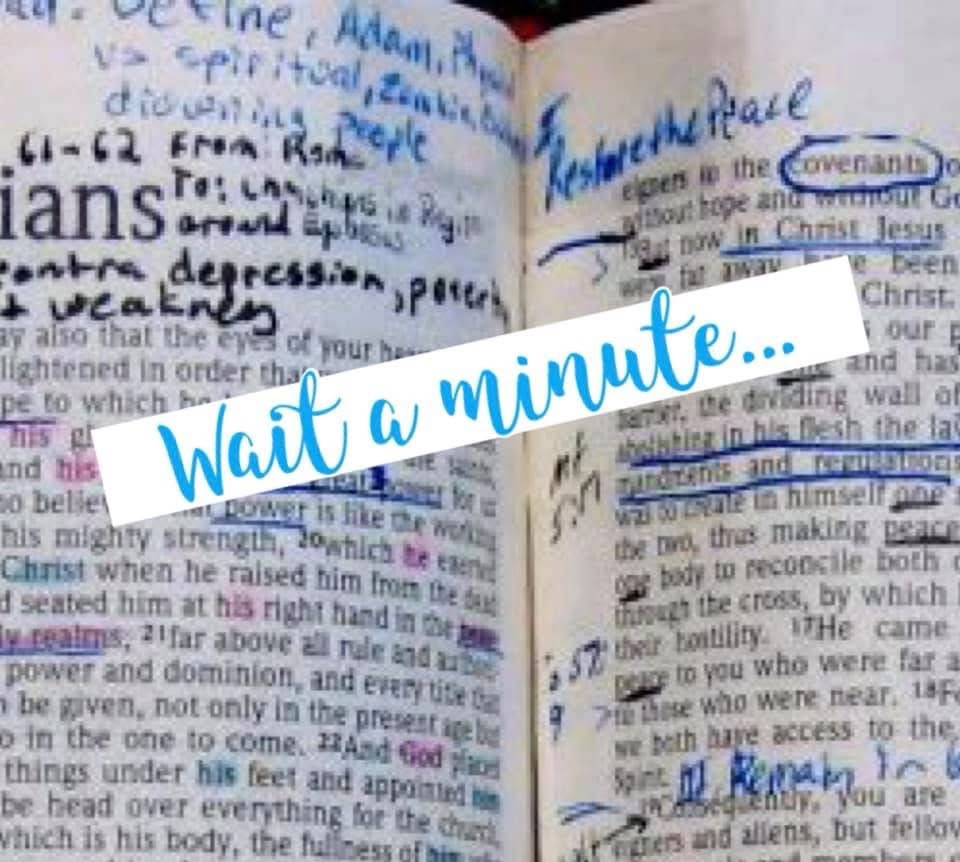 Define, Adam,
vs spiritual, Zombie,
People
61-62 From: Rom
ians To:
around Ephesus
contra depression, povert
+ weakness
ay also that the eyes of your
lightened in order tha
pe to which he
his gl
and his
o believe
power is like the working
his mighty strength, 20which he exerted
Christ when he raised him from the dead
d seated him at his right hand in the
ly realms, 21far above all rule and author
power and dominion, and every title that
be given, not only in the present age but
o in the one to come. 22And God places
things under his feet and appointed him
be head over everything for the church,
which is his body, the fullness of him
Wait a minute...
Restore the Peace
eigners to the covenants o
without hope and without Go
But now in Christ Jesus
were far away have been
Christ.
our p
and has
barrier, the dividing wall of
abolishing in his flesh the la
mandments and regulations
was to create in himself one
the two, thus making peace
one body to reconcile both
through the cross, by which
their hostility. 17He came
peace to you who were far a
to those who were near. 18Fo
we both have access to the
Spirit. Remain In
19Consequently, you are
eigners and aliens, but fellow